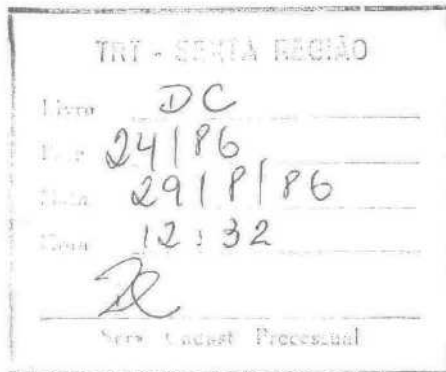 TRT - SEXTA REGIÃO
Livro DC
24/86
29/8/86
Hora 12:32
Serv. Cadast Processual